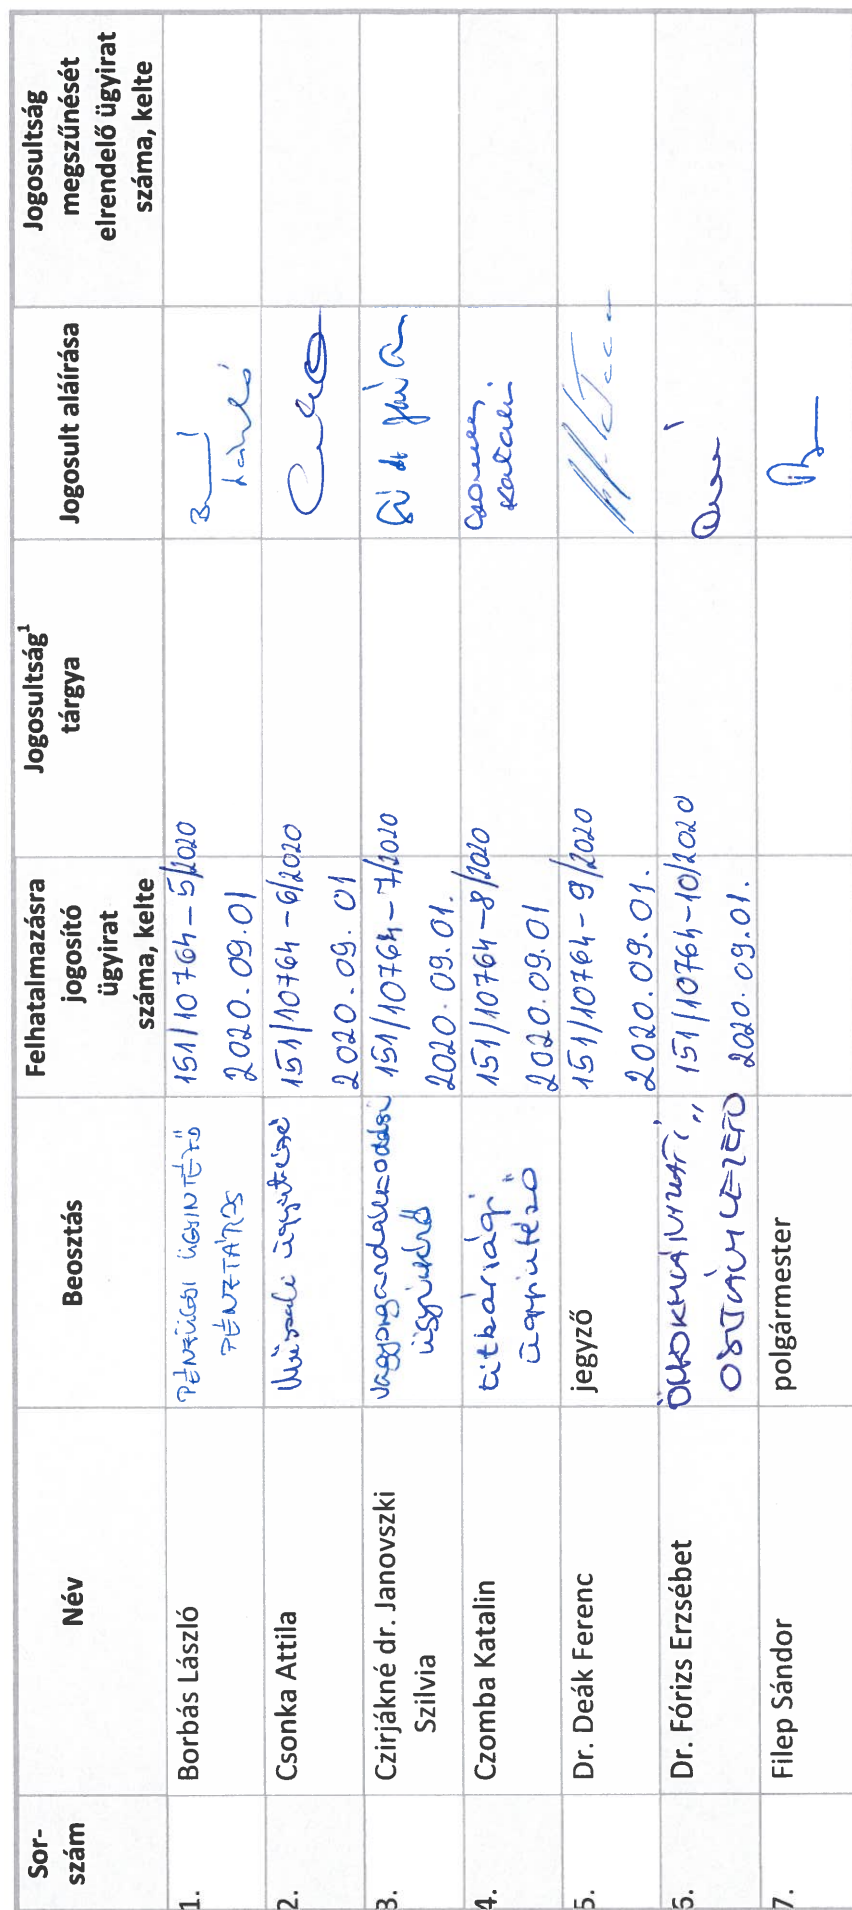 Sor-
szám
Név
Beosztás
Felhatalmazásra
jogosító
ügyirat
száma, kelte
Jogosultság¹
tárgya
Jogosult aláírása
Jogosultság
megszűnését
elrendelő ügyirat
száma, kelte
1.
Borbás László
PÉNZÜGYI ÜGYINTÉZŐ
PÉNZTÁROS
151/10764-5/2020
2020.09.01
László
2.
Csonka Attila
Műszaki ügyintéző
151/10764-6/2020
2020.09.01
3.
Czirjákné dr. Janovszki
Szilvia
vagyongazdálkodási
ügyintéző
151/10764-7/2020
2020.09.01.
4.
Czomba Katalin
titkársági
ügyintéző
151/10764-8/2020
2020.09.01
Czomba
Katalin
5.
Dr. Deák Ferenc
jegyző
151/10764-9/2020
2020.09.01.
6.
Dr. Fórizs Erzsébet
ÖNKORMÁNYZATI
OSZTÁLYVEZETŐ
151/10764-10/2020
2020.09.01.
7.
Filep Sándor
polgármester